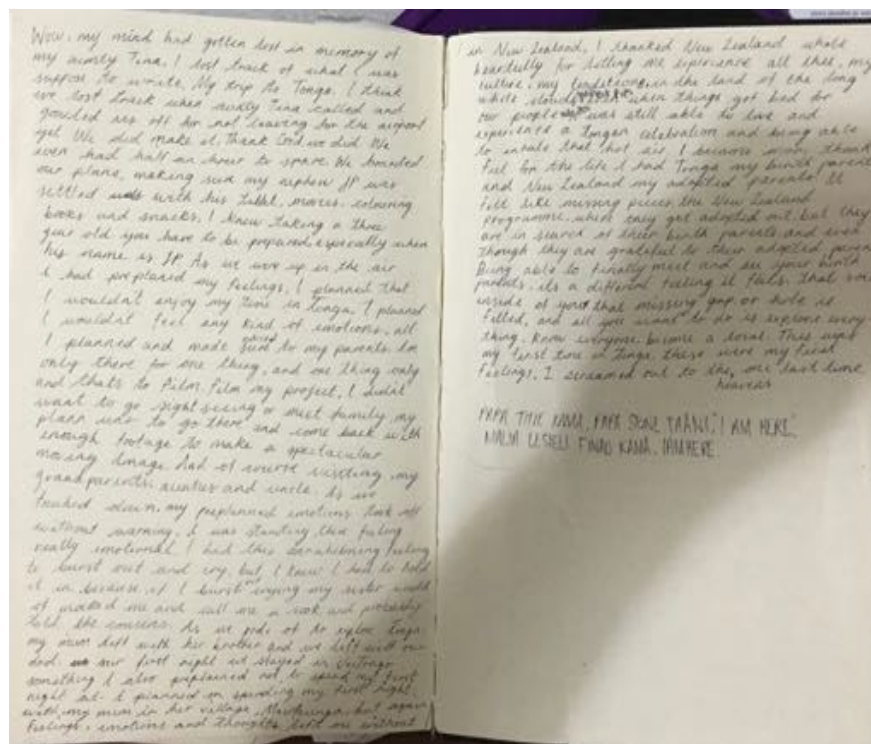 Wow, my mind had gotten lost in memory of
my aunty Tina, I lost track of what I was
suppose to write, My trip to Tonga. I think
we lost track when aunty Tina called and
growled us off for not leaving for the airport
yet. We did make it, thank God we did. We
even had half an hour to spare. We boarded
our plane, making sure my nephew JP was
settled with his tablet, movies, colouring
books and snacks. I knew taking a three
year old you have to be prepared, especially when
his name is JP. As we were up in the air
I had preplaned my feelings, I planned that
I wouldn't enjoy my time in Tonga, I planned
I wouldn't feel any kind of emotions, all
I planned and made to my parents. Im
only there for one thing, and one thing only
and thats to Film. Film my project, I didnt
want to go sight seeing or meet family my
plan was to go there and come back with
enough footage to make a spectacular
moving image. And of course visiting, my
grandparents, aunties and uncle. As we
touched down, my preplanned emotions took off
without warning. I was standing there feeling
really emotional. I had this feeling
to burst out and cry, but I knew I had to hold
it in because if I burst out crying my sister would
of mocked me and call me a sook and probably
told the cousins. As we to explore Tonga
my mum left with her brother and we left with our
dad. our first night we stayed in
something I also preplaned not to spend my first
night at. I planned on spending my first night
with my mum in her village, but again
Feelings, emotions and thoughts left me without
in New Zealand, I thanked New Zealand whole
heartfully for letting me experience all this, my
culture, my traditions in the land of the long
white cloud. when things got bad for
our people was still able to live and
experience a Tongan celebration and being able
to inhale that hot air. I became more thank
full for the life I had Tonga my birth parents
and New Zealand my adopted parents. It
felt like missing pieces, the New Zealand
programme, where they get adopted out but they
are in search of their birth parents and even
though they are grateful to their adopted parents
Being able to finally meet and see your birth
parents, its a different feeling it feels. that
inside of you that missing gap or hole is
filled, and all you want to do is explore every
thing. Know everyone, become a local. This was
my first time in Tonga, these were my first
Feelings, I screamed out to the, one last time
heavens
PAPA KAMA, PAPA SIONE "I AM HERE",
FINAU KAMA, IAMHERE.